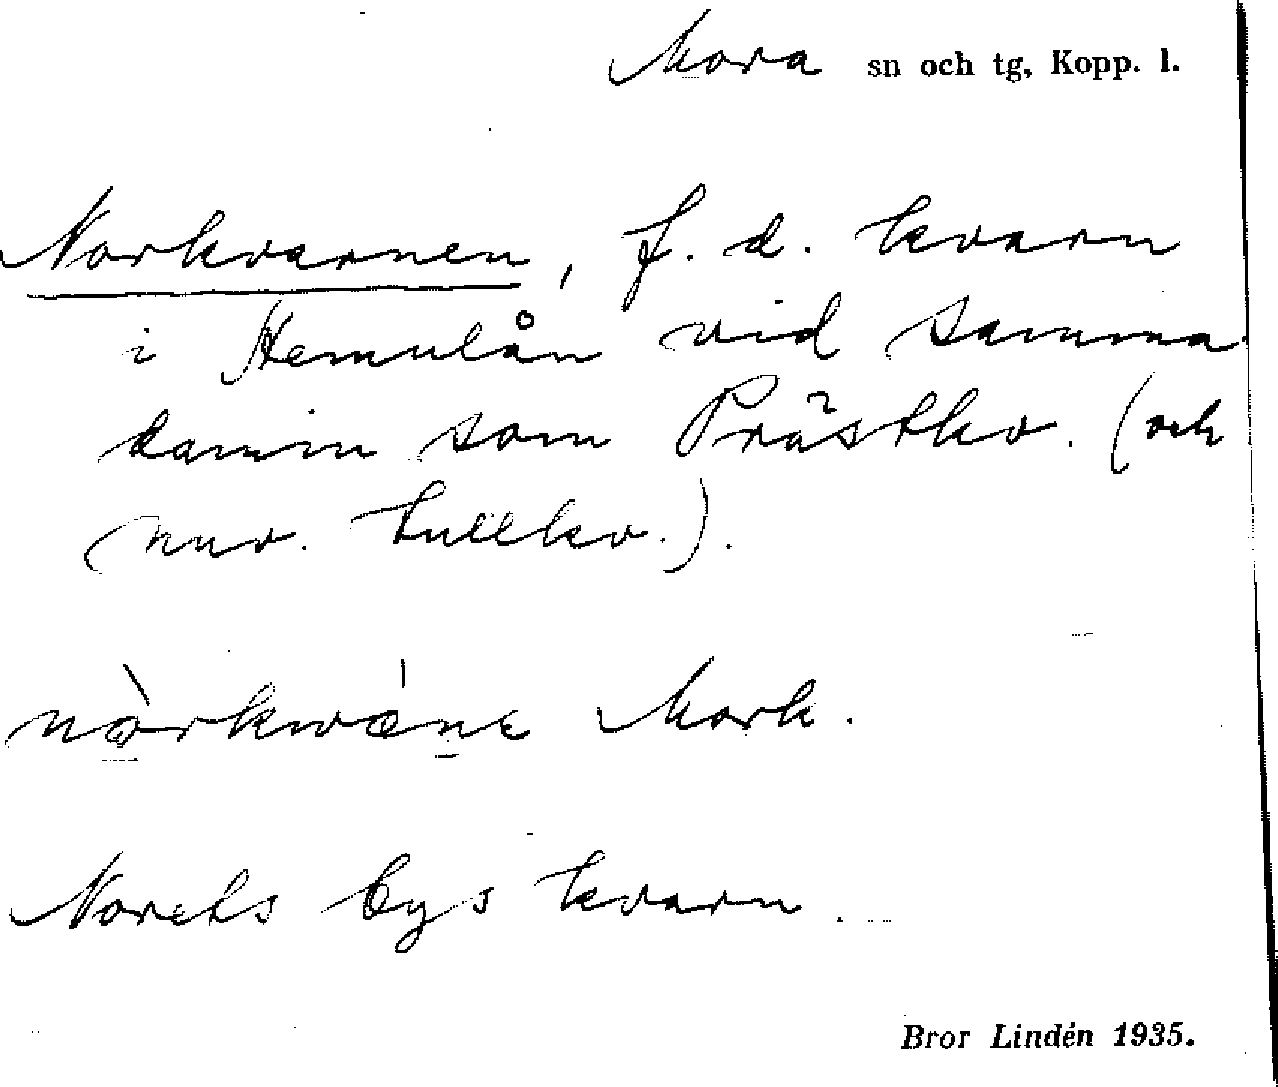 Mora sn och tg, Kopp. l.
Norkvarnen, f. d. kvarn
i Hemulån vid samma
damm som Prästkv. (och
nuv. tullkv.).
nòrkwæ̍ne Mork.
Norets bys kvarn.
Bror Lindén 1935.